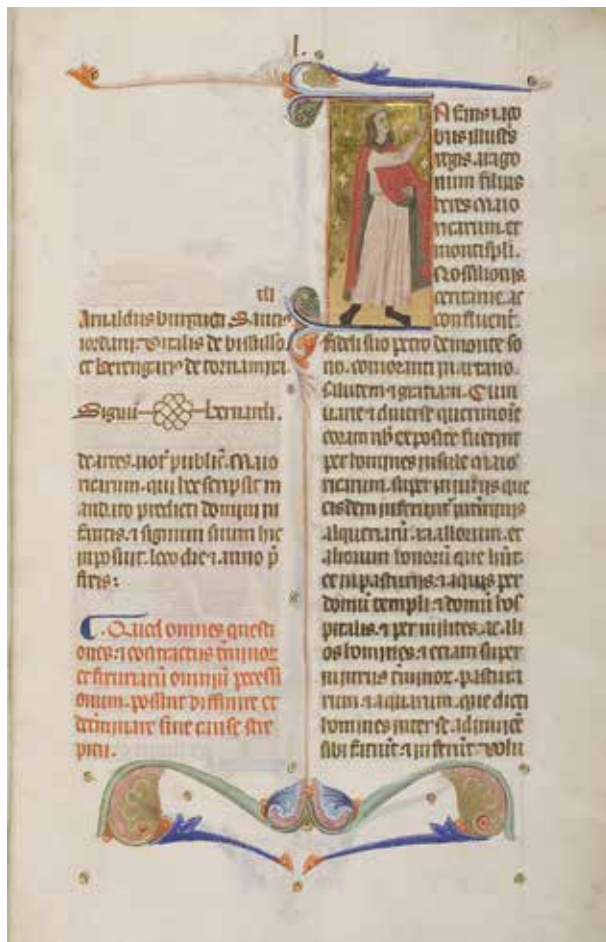 l.
tli
Arnaldus burgueti Sancti
iordani. Vitalis de
et berengarius de tornamira.
Signũ bernardi.
de artes. not̃ public̃. Maio
ricarum. qui hec scripsit m
andato predicti domini in
fantis. ⁊ signum suum hic
inposuit. loco die ⁊ anno p̃
fixis:
Quod omnes questi
ones. ⁊ contractus t̃minor̃
et omniũ possessi
onum. possint diffinire et
det̃minare sine cause stre
pitu.
Nfans iaco
bus illustris
regis. arago
num filius
heres Maio
ricarum. et
montispli.
Rossilionis
ceritanie. ac
confluent̃.
fideli suo petro de monte so
no. comoranti in artano.
Salutem ⁊ gratiam. Cum
uarie ⁊ diuerse querimoñie
coram nõb exposite fuerint
per homines insule maio
ricarum. super iniuriis que
eisdem inferunt̃
alqueriarũ. rafallorum. et
aliorum honorũ que hñt.
et in pasturiis. ⁊ aquis per
domũ templi ⁊ domũ hos
pitalis. ⁊ per milites. ac ali
os homines. ⁊ etiam super
iniuriis t̃minor̃. pastura
rum. ⁊ aquarum. que dicti
homines inter se. adinuicẽ
sibi faciũt ⁊ inferũt. uolu